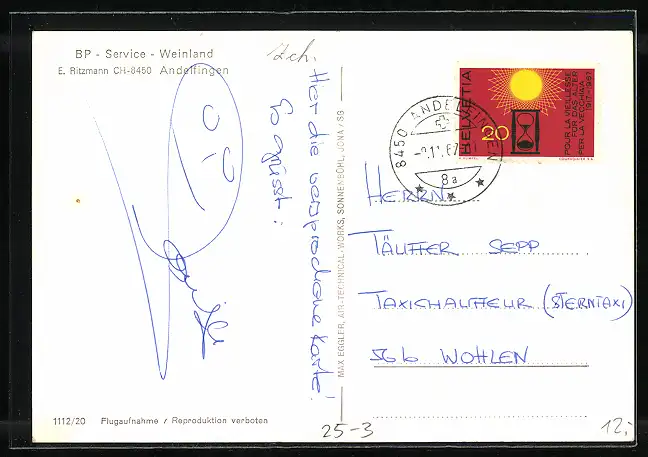 BP - Service - Weinland
E. Ritzmann CH-8450 Andelfingen
Zch.
Hier die versprochene Karte!
So grüsst:
MAX EGGLER, AIR-TECHNICAL-WORKS, SONNENBÜHL, JONA/SG
HELVETIA
20
POUR LA VIEILLESSE
FÜR DAS ALTER
PER LA VECCHIAIA
1917-1967
COURVOISIER S.A.
8450 ANDELFINGEN
8a
HERRN
TÄUFFER SEPP
TAXICHAUFFEUR (STERNTAXI)
5616 WOHLEN
1112/20 Flugaufnahme / Reproduktion verboten
25-3
12.-